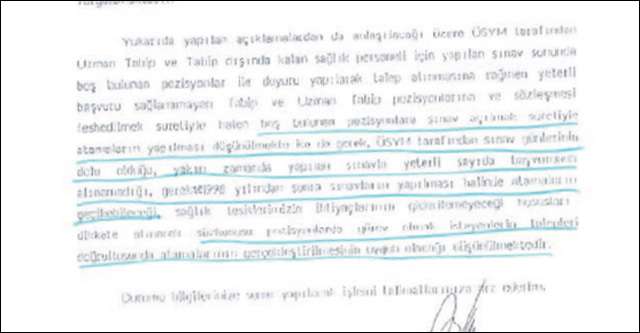 Yukarıda yapılan açıklamalardan da anlaşılacağı üzere ÜSYM tarafından
Uzman Tabip ve Tabip dışında kalan sağlık personeli için yapılan sınav sonunda
boş bulunan pozisyonlar ile duyuru yapılarak talep alınmasına rağmen yeterli
başvuru sağlanamayan Tabip ve Uzman Tabip pozisyonlarına ve sözleşmesi
feshedilmek suretiyle halen boş bulunan pozisyonlara sınav açılmak suretiyle
atamaların yapılması düşünülmekte ise de gerek, ÜSYM tarafından sınav günlerinin
dolu olduğu, yakın zamanda yapılan sınavla yeterli sayıda başvurunun
alınamadığı, gerekse yılından sonra sınavların yapılması halinde atamaların
gecikebileceği, sağlık tesislerimizin ihtiyaçlarının giderilemeyeceği hususları
dikkate alınarak sözkonusu pozisyonlarda görev almak isteyenlerin talepleri
doğrultusunda atamalarının gerçekleştirilmesinin uygun olacağı düşünülmektedir.
Durumu bilgilerinize sunar yapılacak işlemi talimatlarınıza arz ederim.